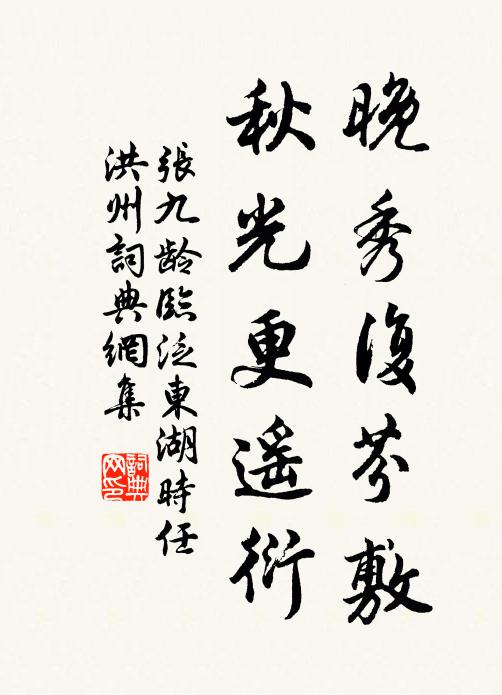 晚秀復芬敷
秋光更遥衍
張九龄臨泛東湖時任
洪州詞典網集
詞典网印